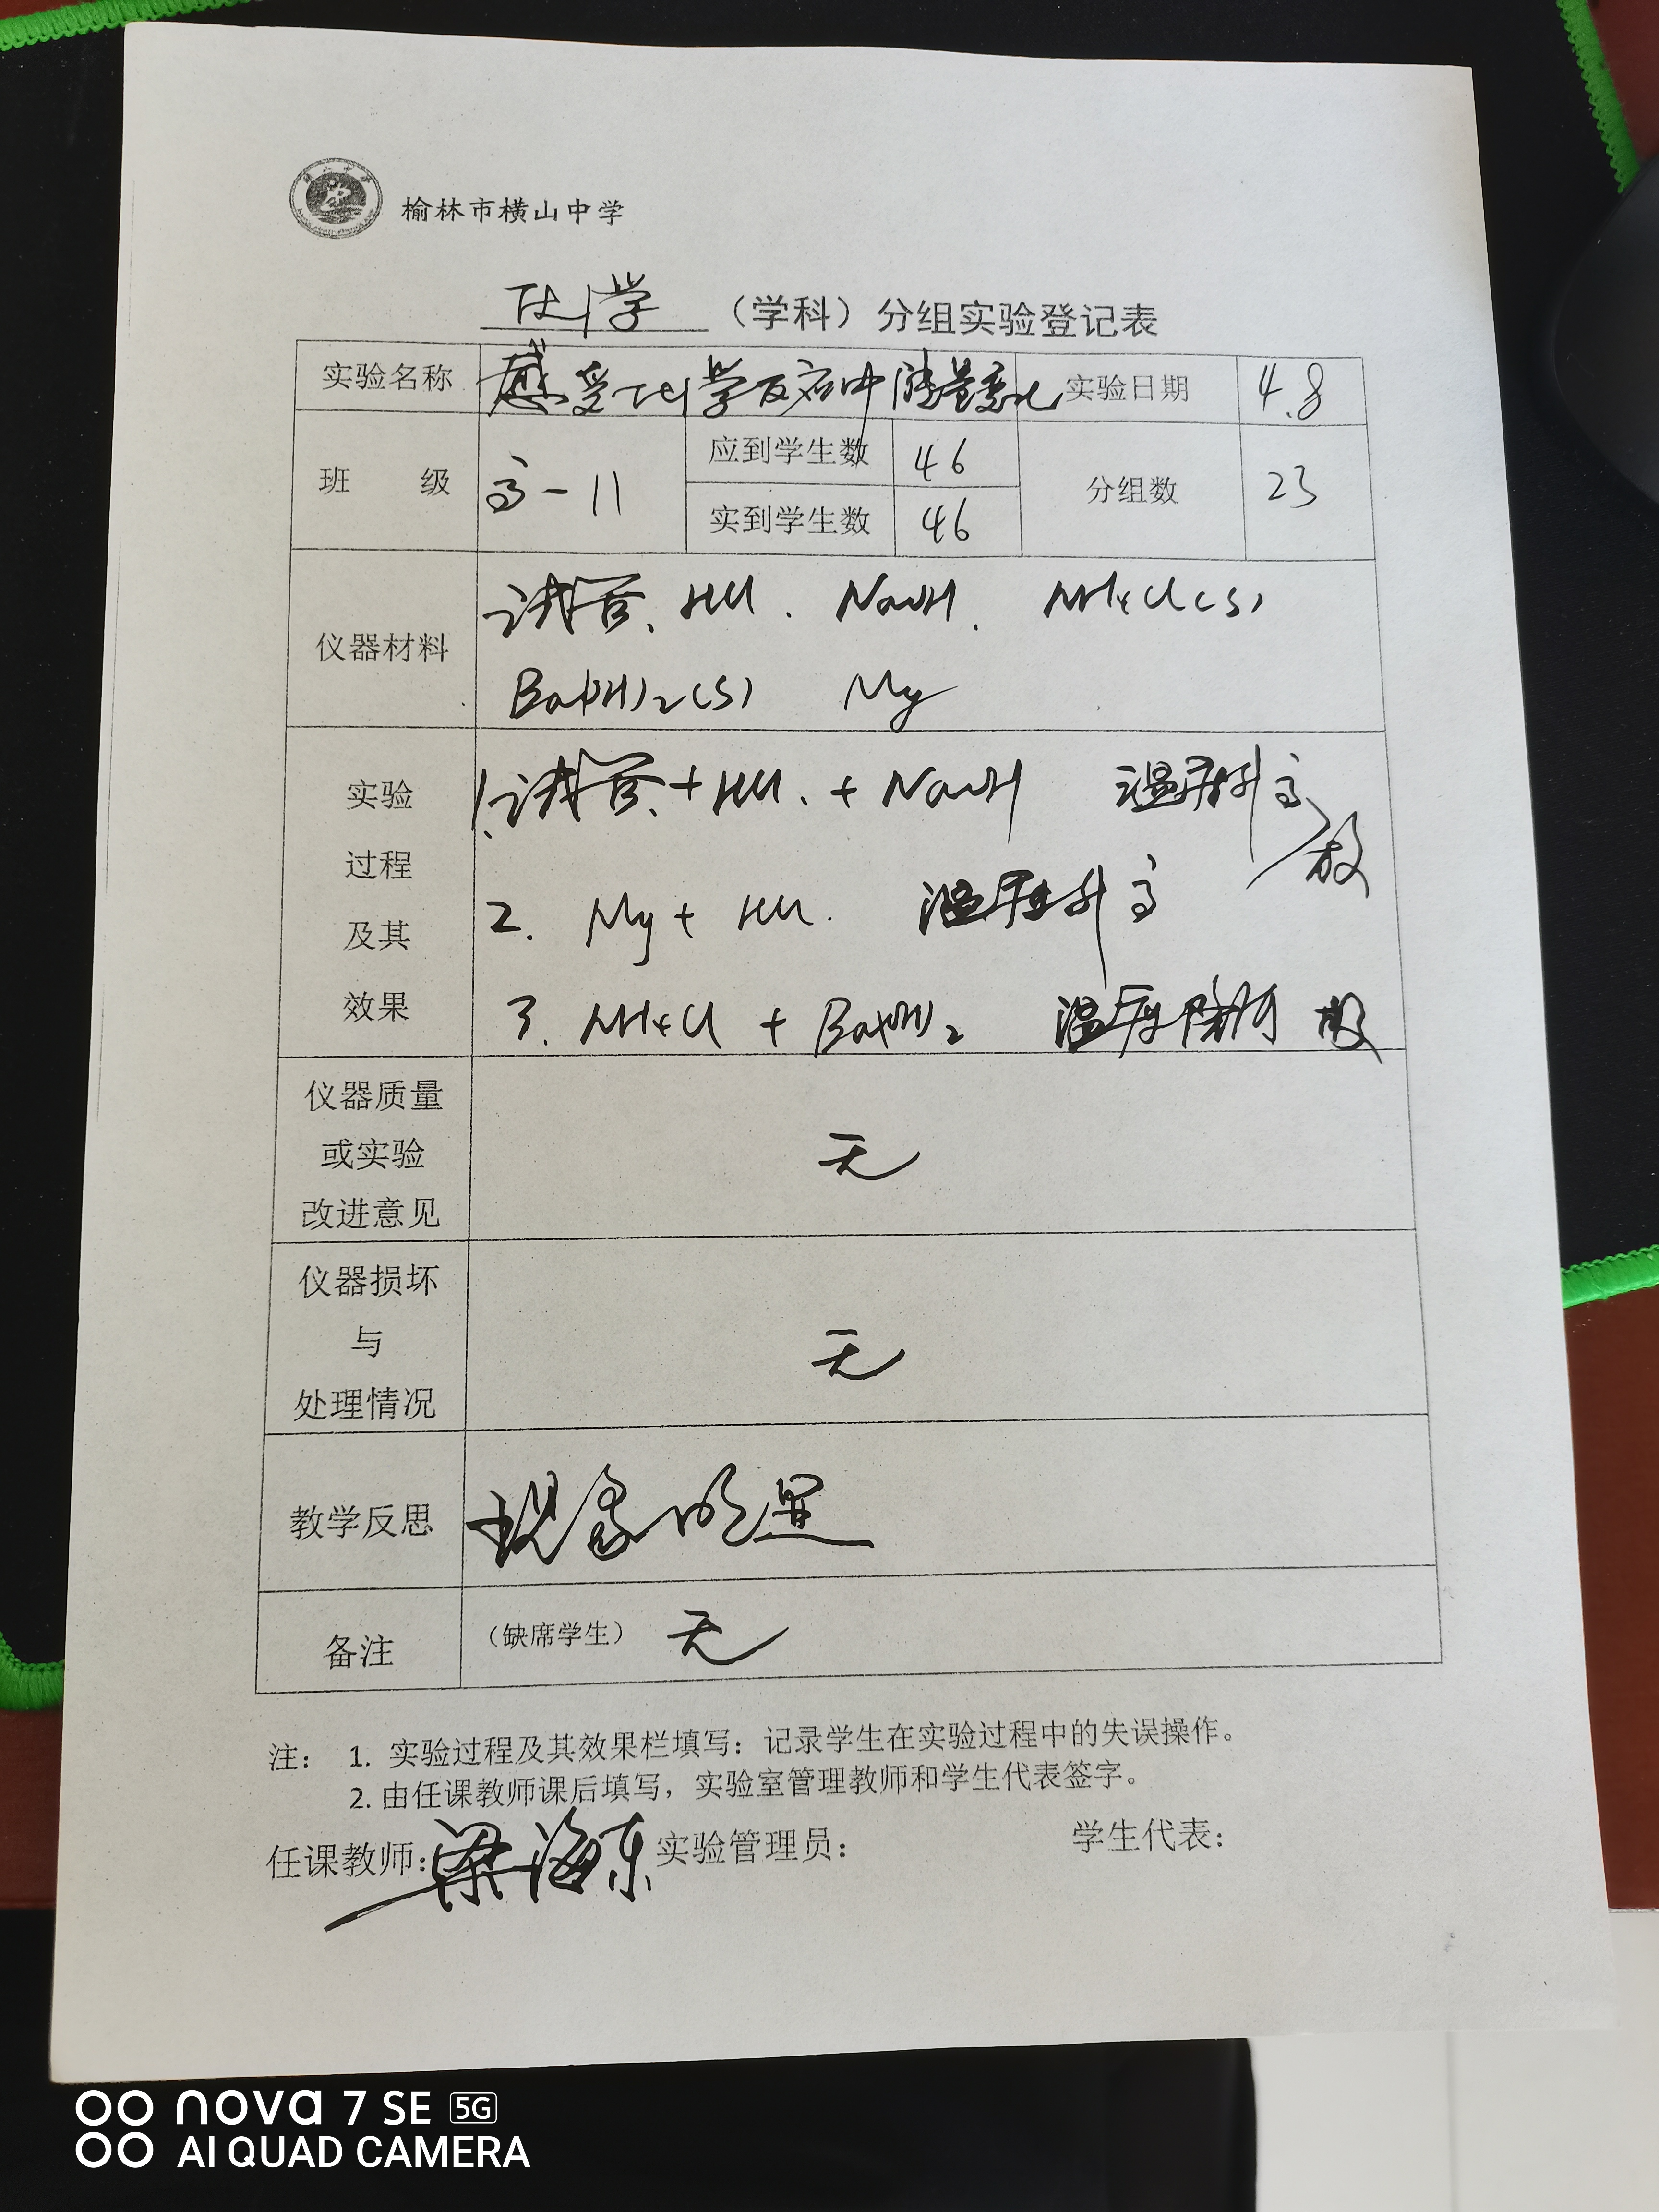 榆林市横山中学
化学 （学科）分组实验登记表
实验名称 感受化学反应中能量变化 实验日期 4.8
班 级 高一11 应到学生数 46 分组数 23
实到学生数 46
仪器材料 试管、HCl. NaOH. NH4Cl(s)
Ba(OH)2(s) Mg
实验过程及其效果
1.试管+HCl.+NaOH 温度升高
放
2. Mg+HCl. 温度升高
3. NH4Cl + Ba(OH)2 温度降低
仪器质量或实验改进意见 无
仪器损坏与处理情况 无
教学反思 现象明显
备注 （缺席学生） 无
注： 1. 实验过程及其效果栏填写：记录学生在实验过程中的失误操作。
2. 由任课教师课后填写，实验室管理教师和学生代表签字。
任课教师：梁海东 实验管理员： 学生代表：
nova 7 SE 5G
AI QUAD CAMERA